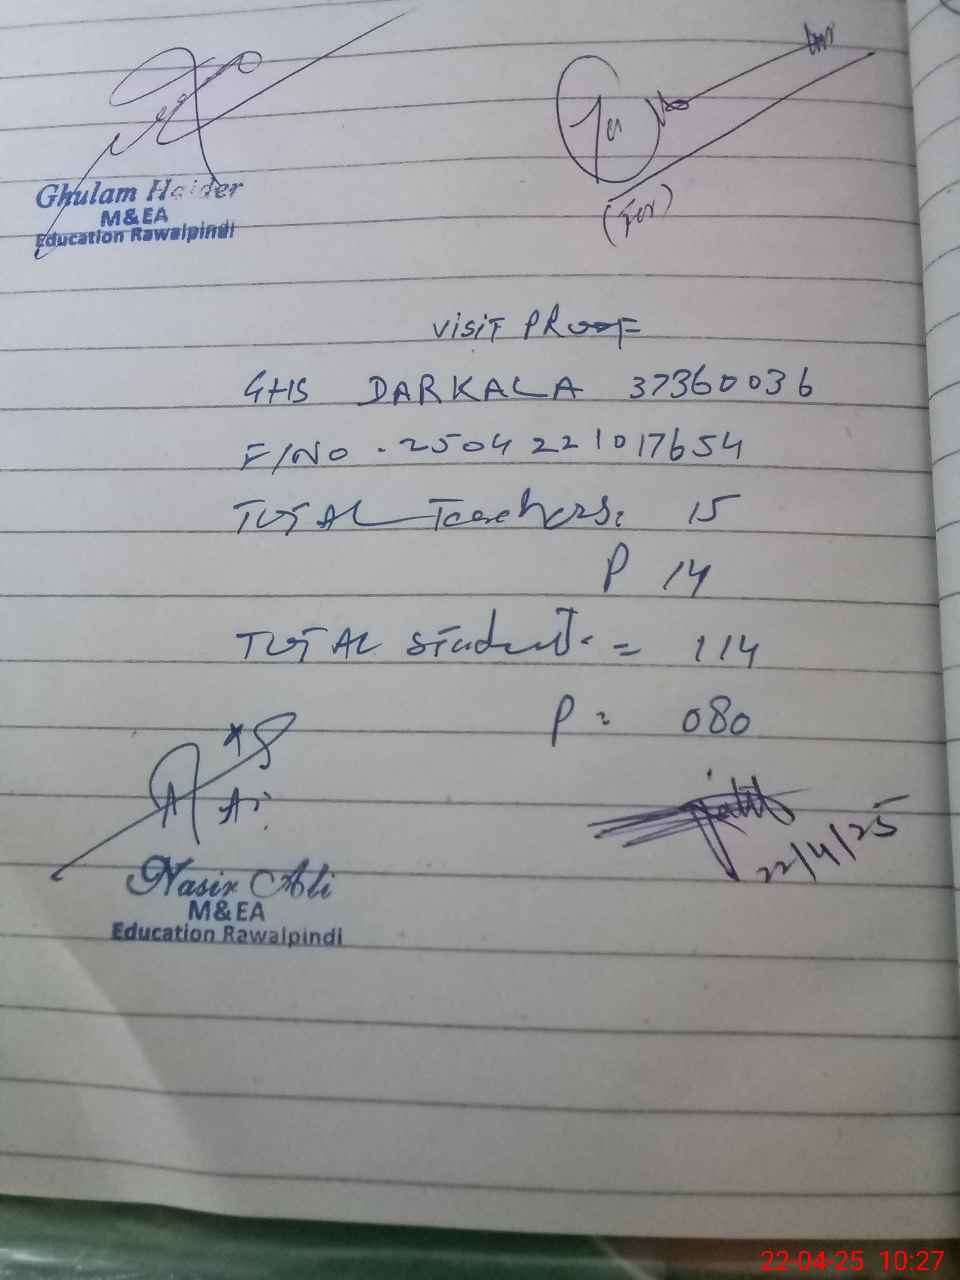 Ghulam Haider
M&EA
Education Rawalpindi
(For)
VISIT PROOF
GHS DARKALA 37360036
F/NO . 2504221017654
TOTAL Teachers: 15
P 14
TOTAL Students = 114
P = 080
22/4/25
Nasir Ali
M&EA
Education Rawalpindi
22-04-25 10:27